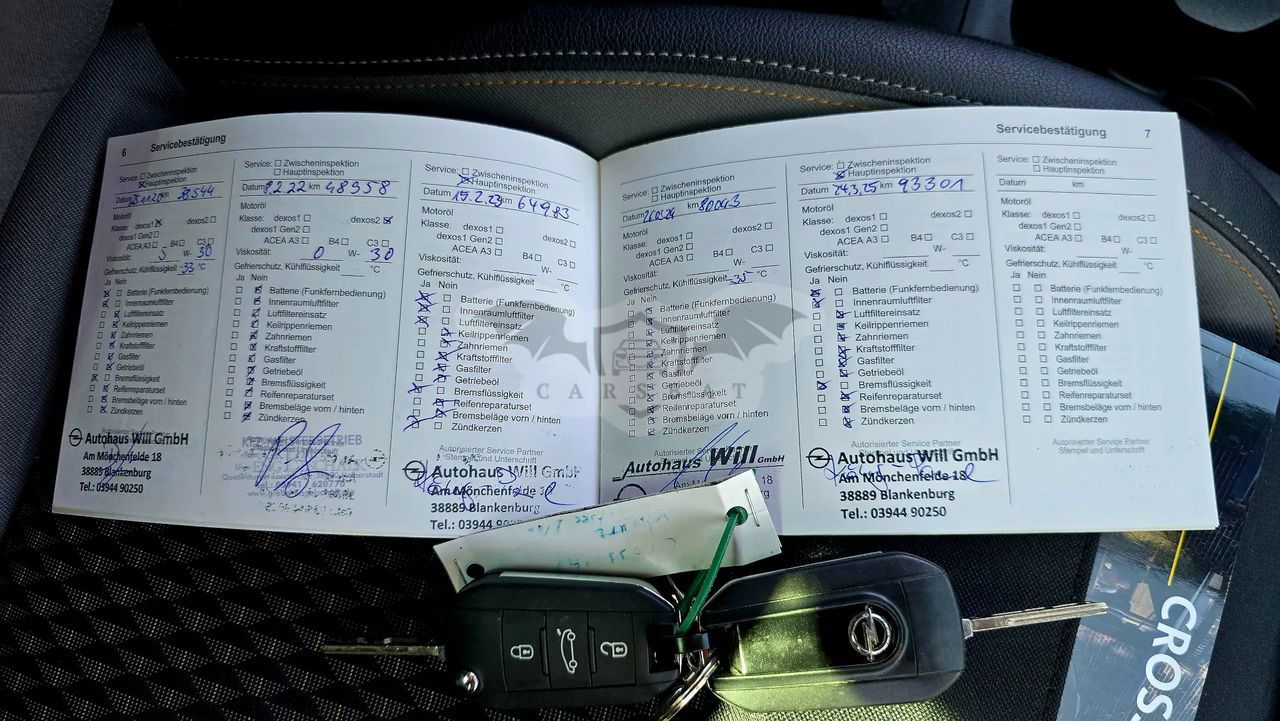 6 Servicebestätigung
Service: Zwischeninspektion
Hauptinspektion
Datum 25.11.20 km 28544
Motoröl
Klasse: dexos1 dexos2
dexos1 Gen2
ACEA A3 B4 C3
Viskosität: 5 W- 30
Gefrierschutz, Kühlflüssigkeit -33 °C
Ja Nein
Batterie (Funkfernbedienung)
Innenraumluftfilter
Luftfiltereinsatz
Keilrippenriemen
Zahnriemen
Kraftstofffilter
Gasfilter
Getriebeöl
Bremsflüssigkeit
Reifenreparaturset
Bremsbeläge vorn / hinten
Zündkerzen
Autohaus Will GmbH
Am Mönchenfelde 18
38889 Blankenburg
Tel.: 03944 90250
Service: Zwischeninspektion
Hauptinspektion
Datum 8.2.22 km 48358
Motoröl
Klasse: dexos1 dexos2
dexos1 Gen2
ACEA A3 B4 C3
Viskosität: 0 W- 30
Gefrierschutz, Kühlflüssigkeit °C
Ja Nein
Batterie (Funkfernbedienung)
Innenraumluftfilter
Luftfiltereinsatz
Keilrippenriemen
Zahnriemen
Kraftstofffilter
Gasfilter
Getriebeöl
Bremsflüssigkeit
Reifenreparaturset
Bremsbeläge vorn / hinten
Zündkerzen
Service: Zwischeninspektion
Hauptinspektion
Datum 15.2.23 km 64983
Motoröl
Klasse: dexos1 dexos2
dexos1 Gen2
ACEA A3 B4 C3
Viskosität: W-
Gefrierschutz, Kühlflüssigkeit °C
Ja Nein
Batterie (Funkfernbedienung)
Innenraumluftfilter
Luftfiltereinsatz
Keilrippenriemen
Zahnriemen
Kraftstofffilter
Gasfilter
Getriebeöl
Bremsflüssigkeit
Reifenreparaturset
Bremsbeläge vorn / hinten
Zündkerzen
Autorisierter Service Partner
Stempel und Unterschrift
Autohaus Will GmbH
Am Mönchenfelde
38889 Blankenburg
Tel.: 03944
Servicebestätigung 7
Service: Zwischeninspektion
Hauptinspektion
Datum km 80043
Motoröl
Klasse: dexos1 dexos2
dexos1 Gen2
ACEA A3 B4 C3
Viskosität: W-
Gefrierschutz, Kühlflüssigkeit -35 °C
Ja Nein
Batterie (Funkfernbedienung)
Innenraumluftfilter
Luftfiltereinsatz
Keilrippenriemen
Zahnriemen
Kraftstofffilter
Gasfilter
Getriebeöl
Bremsflüssigkeit
Reifenreparaturset
Bremsbeläge vorn / hinten
Zündkerzen
Autohaus Will GmbH
Service: Zwischeninspektion
Hauptinspektion
Datum 24.3.25 km 93301
Motoröl
Klasse: dexos1 dexos2
dexos1 Gen2
ACEA A3 B4 C3
Viskosität: W-
Gefrierschutz, Kühlflüssigkeit °C
Ja Nein
Batterie (Funkfernbedienung)
Innenraumluftfilter
Luftfiltereinsatz
Keilrippenriemen
Zahnriemen
Kraftstofffilter
Gasfilter
Getriebeöl
Bremsflüssigkeit
Reifenreparaturset
Bremsbeläge vorn / hinten
Zündkerzen
Autorisierter Service Partner
Stempel und Unterschrift
Autohaus Will GmbH
Am Mönchenfelde 18
38889 Blankenburg
Tel.: 03944 90250
Service: Zwischeninspektion
Hauptinspektion
Datum km
Motoröl
Klasse: dexos1 dexos2
dexos1 Gen2
ACEA A3 B4 C3
Viskosität: W-
Gefrierschutz, Kühlflüssigkeit °C
Ja Nein
Batterie (Funkfernbedienung)
Innenraumluftfilter
Luftfiltereinsatz
Keilrippenriemen
Zahnriemen
Kraftstofffilter
Gasfilter
Getriebeöl
Bremsflüssigkeit
Reifenreparaturset
Bremsbeläge vorn / hinten
Zündkerzen
Autorisierter Service Partner
Stempel und Unterschrift
CROSS